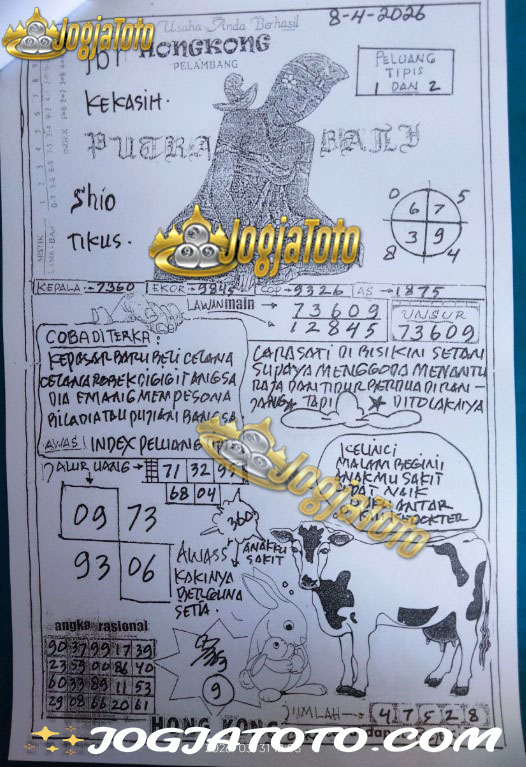 8-4-2026
Usaha Anda Berhasil
JOGJATOTO
HONGKONG
PELAMBANG
PELUANG
TIPIS
1 DAN 2
KEKASIH.
PUTRA BALI
Shio
TIKUS.
0 5
6 7
3 9
8 4
JOGJATOTO
KEPALA:-7360 EKOR=9845 COP=9326 AS=1875
LAWAN main → 73609
12845
UNSUR
73609
COBA DI TERKA:
KEPASAR BARU BELI CELANA
CELANA ROBEK DIGIGIT ANGSA
DIA EMANG MEMPESONA
BILA DIA TAU PUJIAN BANGSA
AWAS! INDEX PELUANG
LARASATI DI BISIKIN SETAN
SUPAYA MENGGODA MENANTU
RAJA DAN TIDUR BERDUA DI RAN-
JANG TAPI DI TOLAKNYA
JALUR UANG → 71 32 95
68 04
JOGJATOTO
KELINCI
MALAM BEGINI
ANAKMU SAKIT
NAIK
ANTAR
DOKTER
09 73
93 06
360
ANAKKU
SAKIT
AWASS
KAKINYA
BERGUNA
SETIA.
angka rasional
90 37 99 17 39
23 59 00 86 40
60 33 89 11 53
29 08 66 20 61
9
JUMLAH → 4 7 5 2 8
HONG KONG
JOGJATOTO.COM